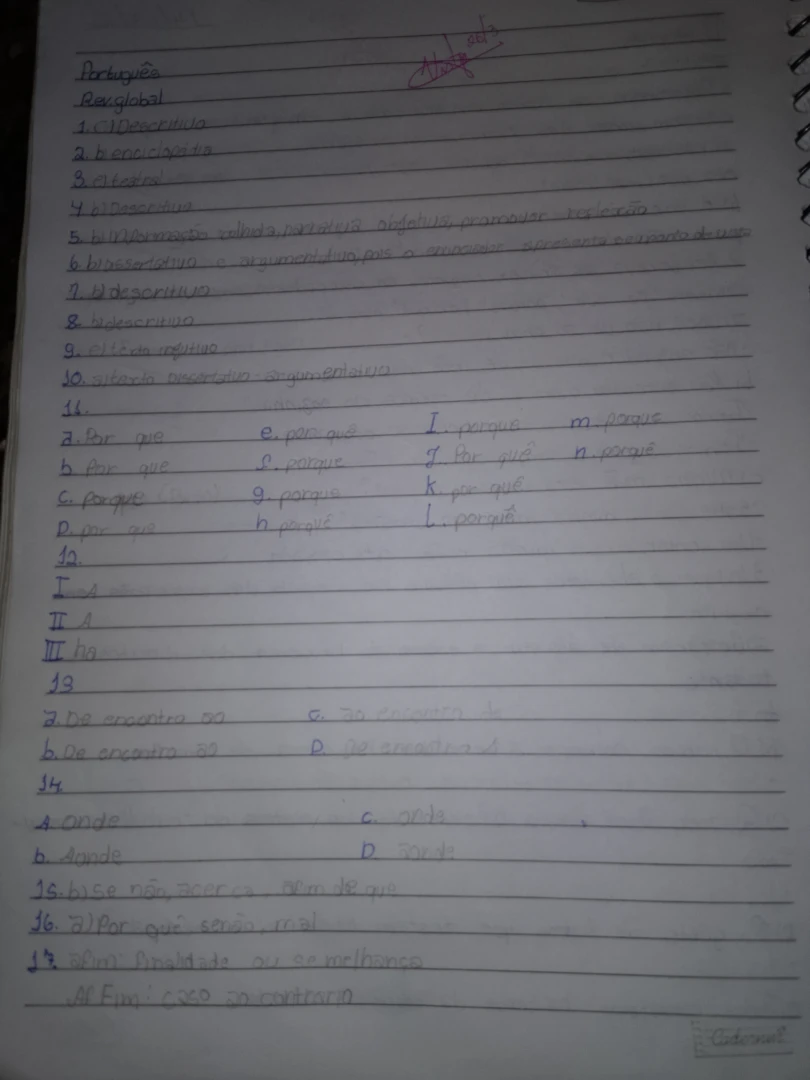 Português
Rev. global
1. c) Descritivo
2. b enciclopédia
3. e) teatral
4 b) Descritivo
5. b) informação colhida, narrativa objetiva, promover reflexão
6. b) assertativo e argumentativo, pois o enunciador apresenta ponto de vista
7. b) descritivo
8. b) descritivo
9. e) texto
10. texto dissertativo argumentativo
11.
a. Por que e. por quê I. porque m. porque
b Por que f. porque J. Por quê n. porquê
c. porque g. porque K por quê
D. por que h porquê L. porquê
12.
I A
II A
III ha
13
a. De encontro ao c. ao encontro de
b. De encontro ao D. De encontro A
14
A onde c. onde
b. Aonde D aonde
15. b) Se não, acerca, afim de que
16. a) Por quê senão, mal
17. afim: finalidade ou semelhança
A Fim: caso ao contrario
Caderno